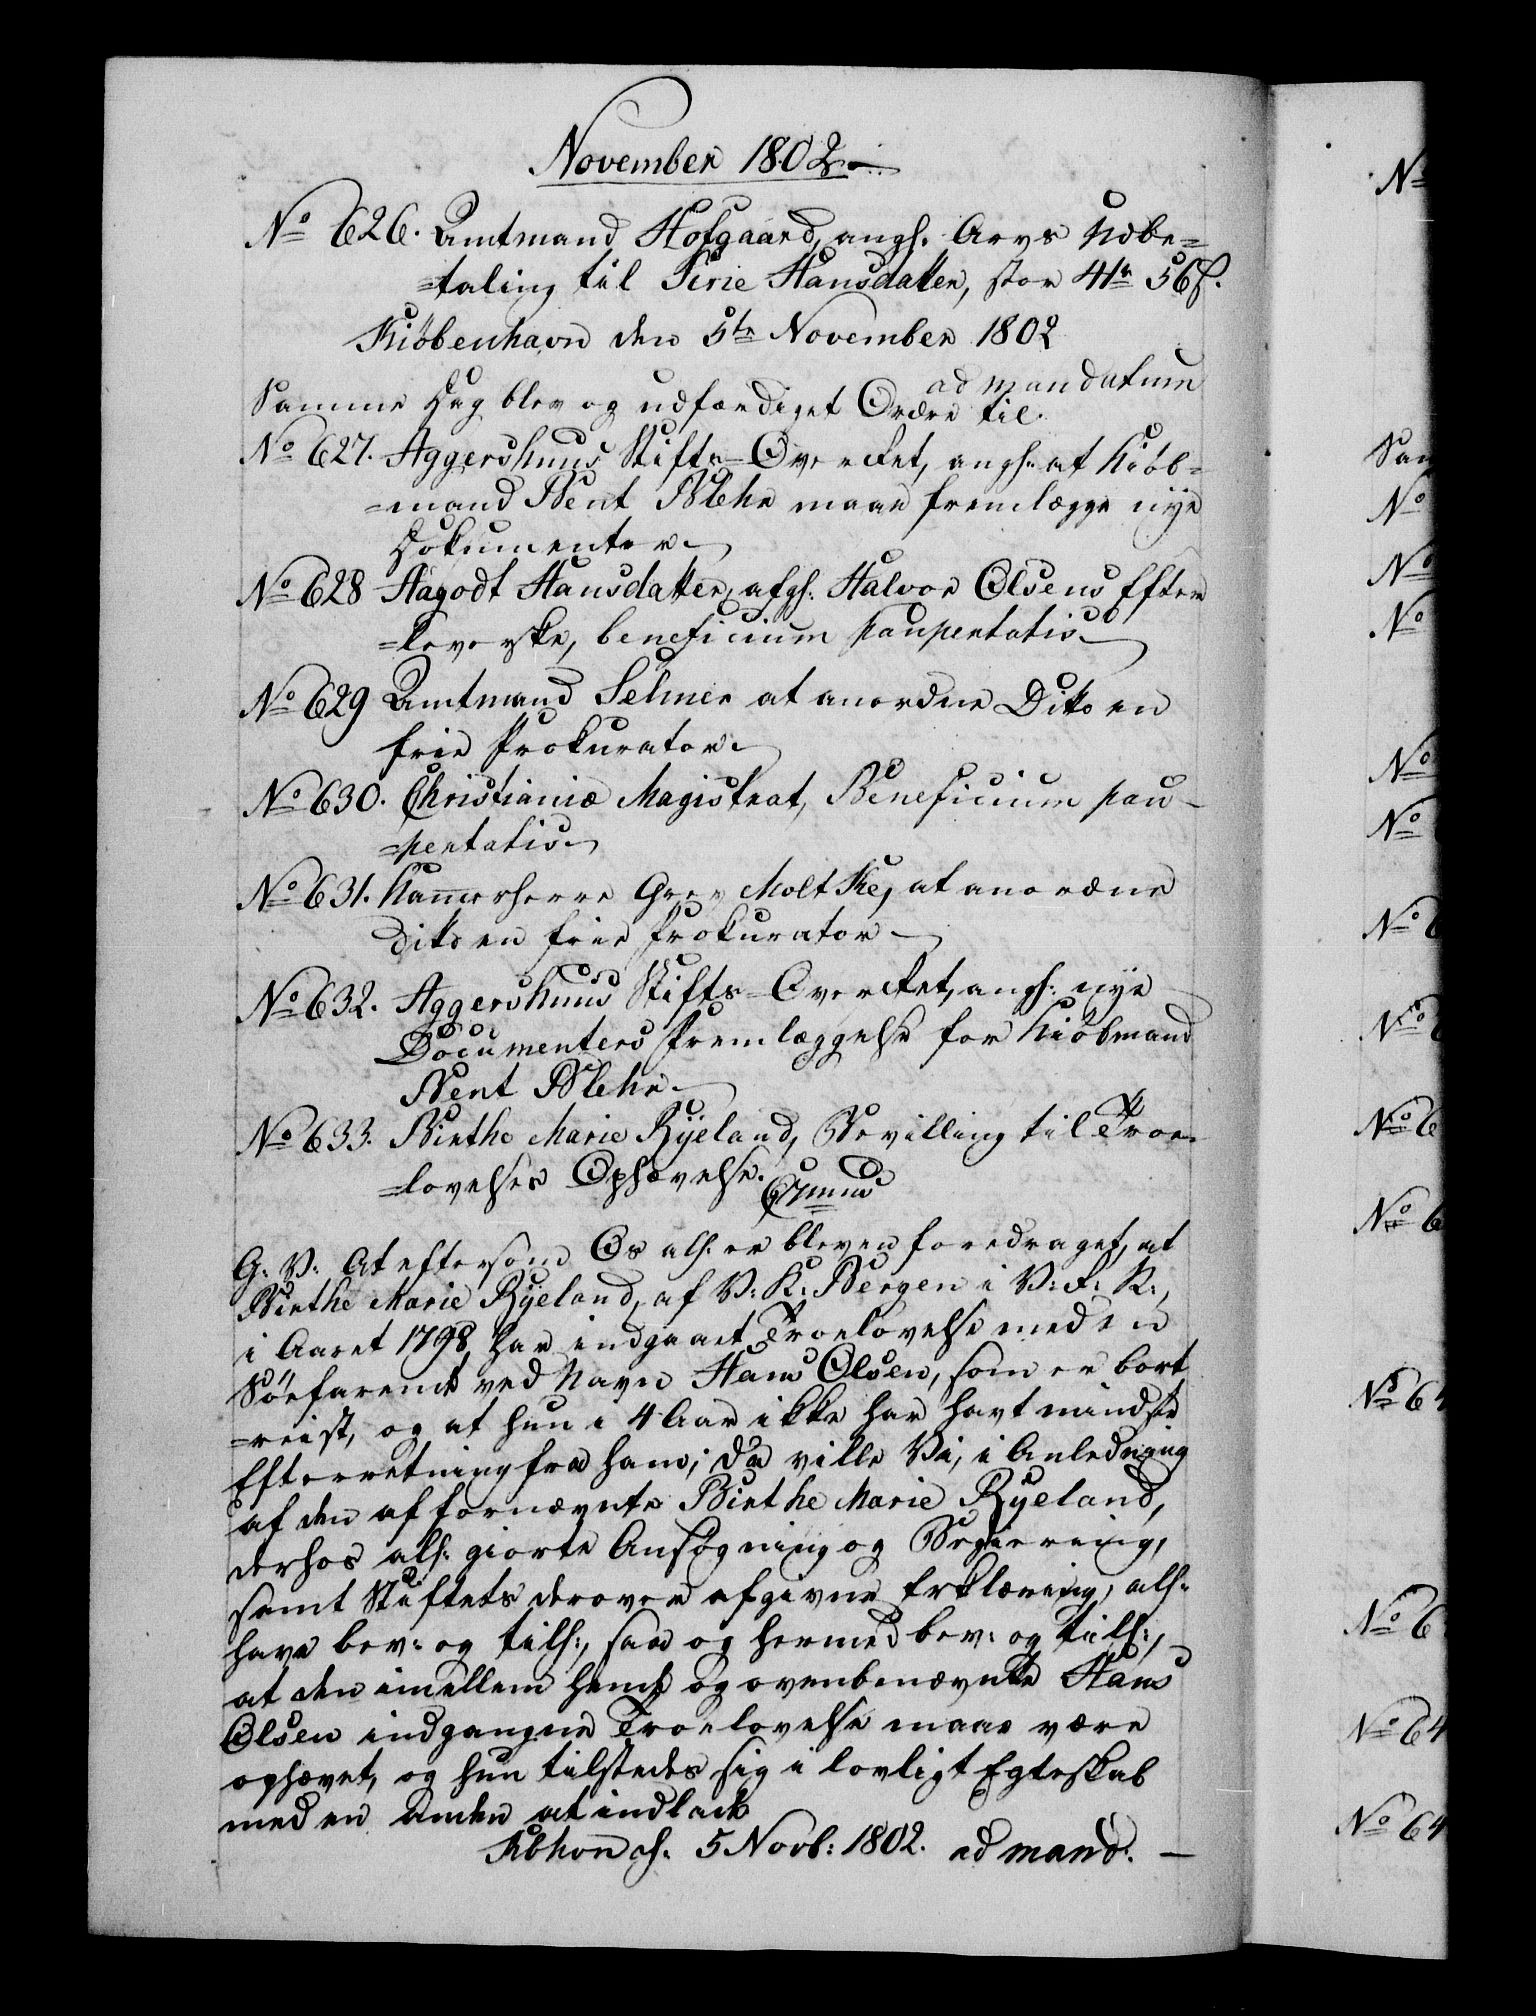 November 1802.
No 626. Amtmand Hofgaard, angl. Arvs Udbe=
=taling til Sirie Hansdatter, stor 41r 56s.
Kiöbenhavn den 5te November 1802
ad mandatum
Samme Dag blev og udfærdiget Ordre til.
No 627. Aggershuus Stifts-Overret, angl. at Kiöb=
=mand Bent Blehr maae fremlægge nye
Dokumenter
No 628 Aagodt Hansdatter, afgl. Halvor Olsens Efter
=leverske, beneficium paupertatis
No 629 Amtmand Selmer at anordne Dito en
frie Prokurator
No 630. Christianiæ Magistrat, Beneficium pau-
=pertatis
No 631. Kam̅erherre Grev Moltke, at anordne
dito en frie Prokurator
No 632. Aggershuus Stifts-Overret, angl. nye
Documenters Fremlæggelse for Kiöbmand
Bent Blehr
No 633. Birthe Marie Ryeland, Bevilling til Troe-
=lovelses Ophævelse.
G: V: At eftersom Os all: er bleven foredraget, at
Birthe Marie Ryeland, af V: K: Bergen i V: R: N:,
i Aaret 1798 har indgaaet Troelovelse med en
Söefarende ved Navn Hans Olsen, som er bort
=reist, og at hun i 4 Aar ikke har havt mindste
Efterretning fra ham; Da ville Vi, i Anledning
af den af fornævnte Birthe Marie Ryeland,
derhos all: giorte Ansøgning og Begiering,
samt Stiftets derover afgivne Erklæring, all:
have bev: og till:, saa og hermed bev: og till:,
at den imellem hende og ovenbenævnte Hans
Olsen indgangne Troelovelse maae være
ophævet, og hun tilstedes sig i lovligt Egteskab
med en anden at indlade
Kbhvn d. 5 Novb: 1802. ad mand. -
No
Sam
No
No
No
No
No
No 6
No 6
No 6
No 6
No 64
No 6
No 64
No 64